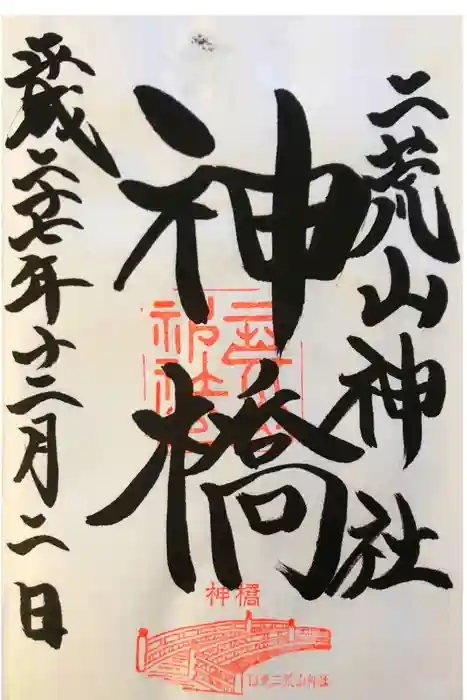 二荒山神社
神橋
平成二十七年十二月二日
神橋
日光二荒山神社